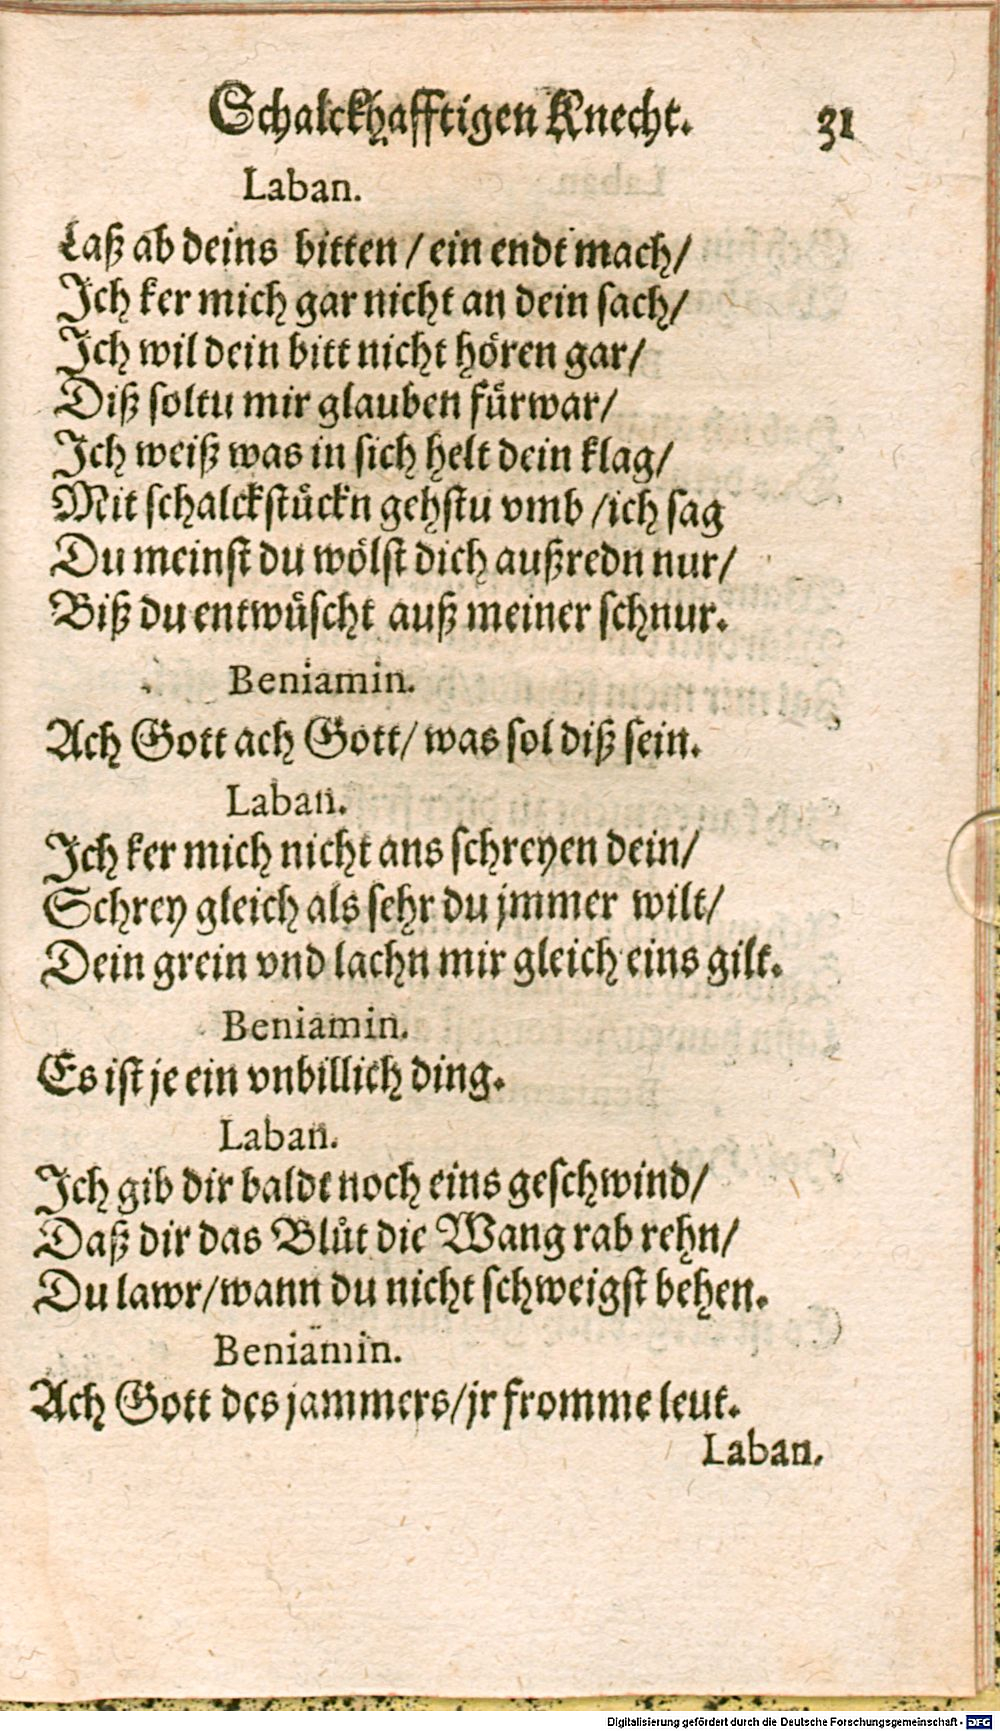 Schalckhafftigen Knecht. 31
Laban.
Laß ab deins bitten / ein endt mach/
Ich ker mich gar nicht an dein sach/
Ich wil dein bitt nicht hören gar/
Diß soltu mir glauben fürwar/
Ich weiß was in sich helt dein klag/
Mit schalckstückn gehstu vmb /ich sag
Du meinst du wölst dich außredn nur/
Biß du entwüscht auß meiner schnur.
Beniamin.
Ach Gott ach Gott/ was sol diß sein.
Laban.
Ich ker mich nicht ans schreyen dein/
Schrey gleich als sehr du jmmer wilt/
Dein grein vnd lachn mir gleich eins gilt.
Beniamin.
Es ist je ein vnbillich ding.
Laban.
Ich gib dir baldt noch eins geschwind/
Daß dir das Blůt die Wang rab rehn/
Du lawr/wann du nicht schweigst behen.
Beniamin.
Ach Gott des jammers/jr fromme leut.
Laban.
Digitalisierung gefördert durch die Deutsche Forschungsgemeinschaft - DFG